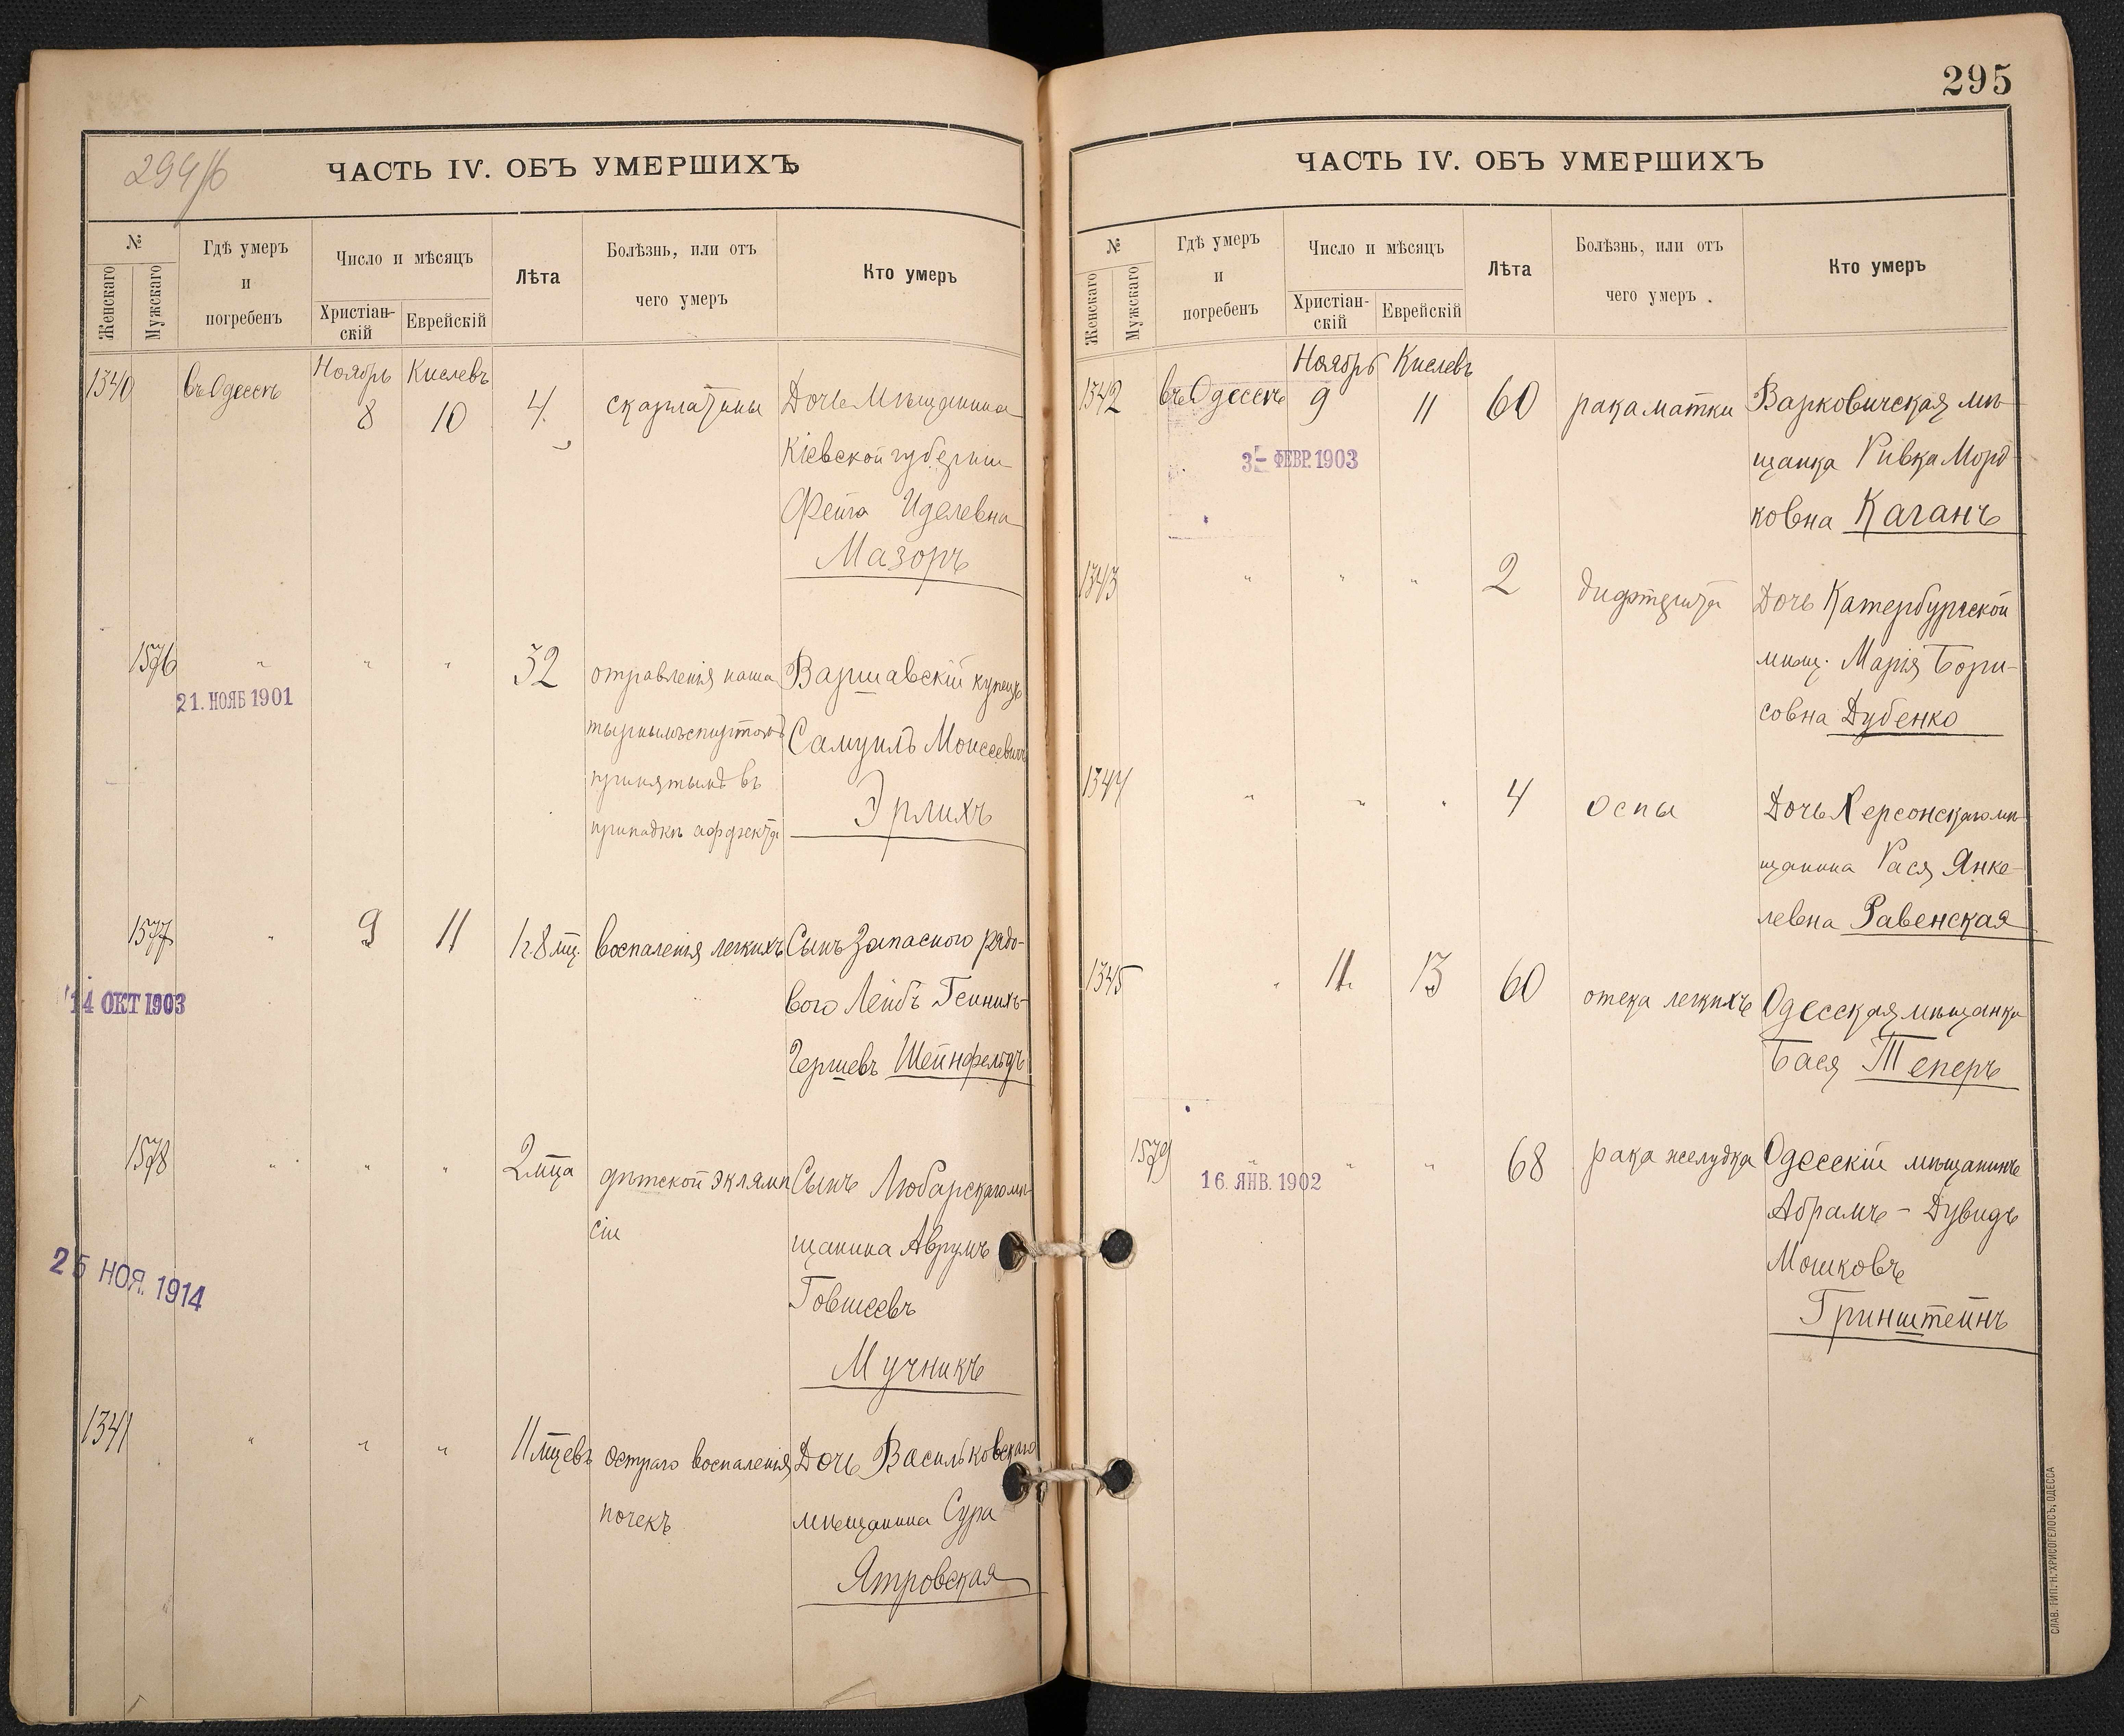 294/б
ЧАСТЬ IV. ОБЪ УМЕРШИХЪ
№
Женскаго
Мужскаго
Гдѣ умеръ
и
погребенъ
Число и мѣсяцъ
Христіан-
скій
Еврейскій
Лѣта
Болѣзнь, или отъ
чего умеръ
Кто умеръ
1340
въ Одессѣ
Ноябрь
8
Кислевъ
10
4
скарлатины
Дочь Мѣщанина
Кіевской губерніи
Фейга Иделевна
Мазоръ
1576
"
21. НОЯБ 1901
"
"
32
отравленія наша
тырнымъ спиртомъ
принятымъ въ
припадкѣ аффекта
Варшавскій купецъ
Самуилъ Моисеевичъ
Эрлихъ
1577
14 ОКТ 1903
"
9
11
1г. 8 мц.
воспаленія легкихъ
Сынъ Запасного рядо-
вого Лейбъ Гейнихъ-
Гершевъ Шейнфельдъ
1578
25 НОЯ. 1914
"
"
"
2 мца
дѣтской эклямп
сіи
Сынъ Любарскаго мѣ-
щанина Аврумъ
Говшеевъ
Мучникъ
1341
"
"
"
11 мцевъ
остраго воспаленія
почекъ
Дочь Васильковскаго
мѣщанина Сура
Ятровская
295
ЧАСТЬ IV. ОБЪ УМЕРШИХЪ
№
Женскаго
Мужскаго
Гдѣ умеръ
и
погребенъ
Число и мѣсяцъ
Христіан-
скій
Еврейскій
Лѣта
Болѣзнь, или отъ
чего умеръ
Кто умеръ
1342
въ Одессѣ
3- ФЕВР. 1903
Ноябрь
9
Кислевъ
11
60
рака матки
Варковичская мѣ-
щанка Ривка Морд-
ковна Каганъ
1343
"
"
"
2
дифтерита
Дочь Катербургской
мѣщ. Марія Бори-
совна Дубенко
1344
"
"
"
4
оспы
Дочь Херсонскаго мѣ-
щанина Рася Янке-
левна Равенская
1345
"
11
13
60
отека легкихъ
Одесская мѣщанка
Бася Теперъ
1579
"
16. ЯНВ. 1902
"
"
68
рака желудка
Одесскій мѣщанинъ
Абрамъ - Дувидъ
Мошковъ
Гринштейнъ
СЛАВ. ТИП. Н. ХРИСОГЕЛОСЪ, ОДЕССА